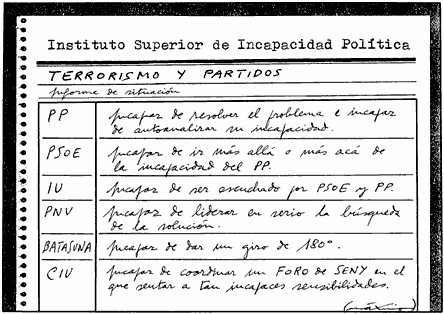 Instituto Superior de Incapacidad Política
TERRORISMO Y PARTIDOS
Informe de situación
PP incapaz de resolver el problema e incapaz
de autoanalizar su incapacidad.
PSOE incapaz de ir más allá o más acá de
la incapacidad del PP.
IU incapaz de ser escuchado por PSOE y PP.
PNV incapaz de liderar en serio la búsqueda
de la solución.
BATASUNA incapaz de dar un giro de 180º.
CIU incapaz de coordinar un FORO DE SENY en el
que sentar a tan incapaces sensibilidades.
(máximo)